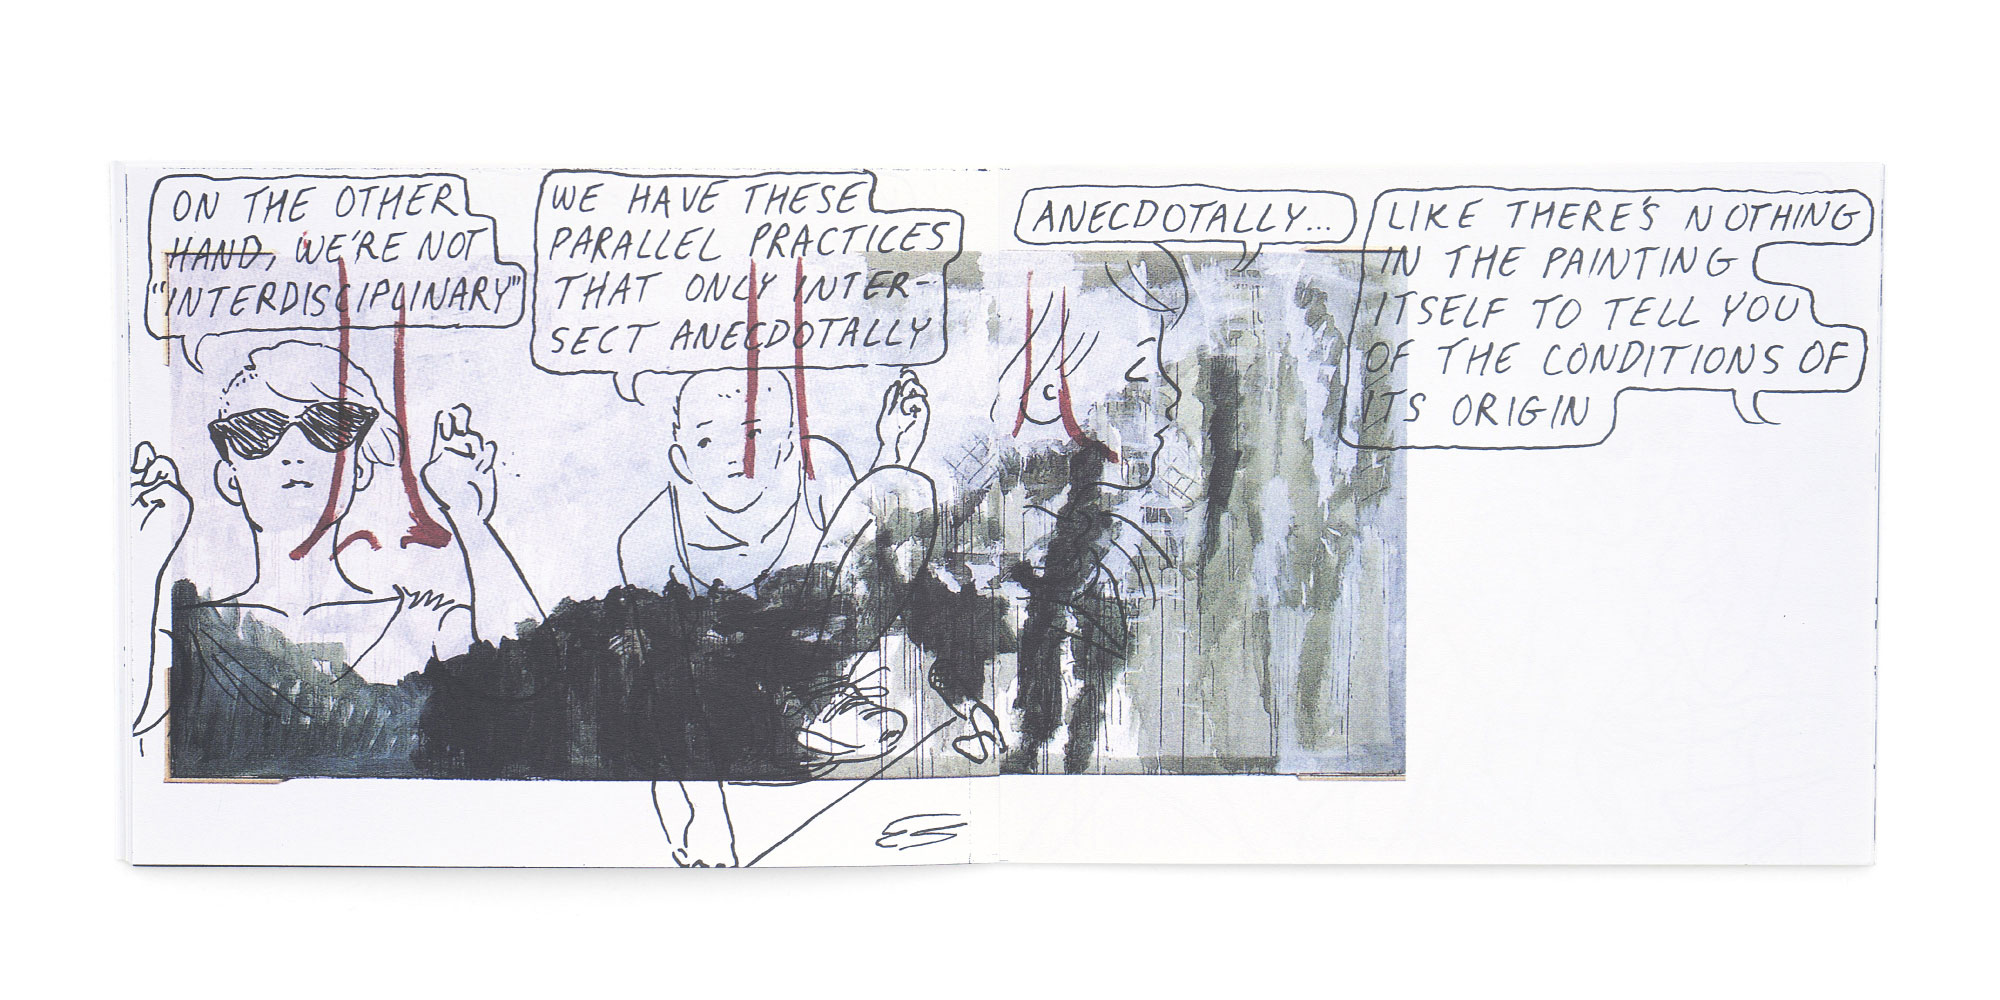 ON THE OTHER
HAND, WE'RE NOT
"INTERDISCIPLINARY"
WE HAVE THESE
PARALLEL PRACTICES
THAT ONLY INTER-
SECT ANECDOTALLY
ANECDOTALLY...
LIKE THERE'S NOTHING
IN THE PAINTING
ITSELF TO TELL YOU
OF THE CONDITIONS OF
ITS ORIGIN
ES